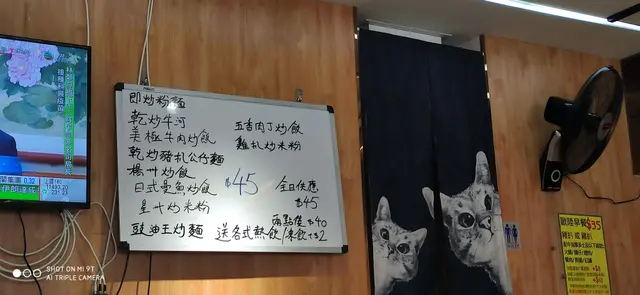 即炒粉麵
乾炒牛河
美極牛肉炒飯
乾炒豬扒公仔麵
楊州炒飯
日式鰻魚炒飯
星洲炒米粉
豉油王炒麵
五香肉丁炒飯
雞扎炒米粉
$45
全日供應
$45
兩點後 $40
送各式熱飲/凍飲+$2
$35
SHOT ON MI 9T
AI TRIPLE CAMERA